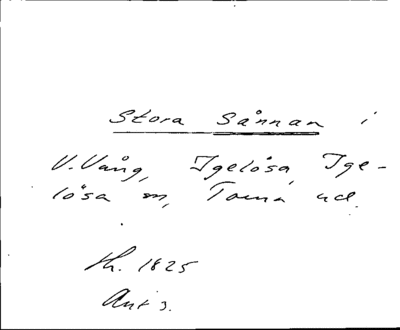 Stora Sånnan i
V. Vång, Igelösa, Ige-
lösa sn, Torna hd.
Sh. 1825
Akt 3.